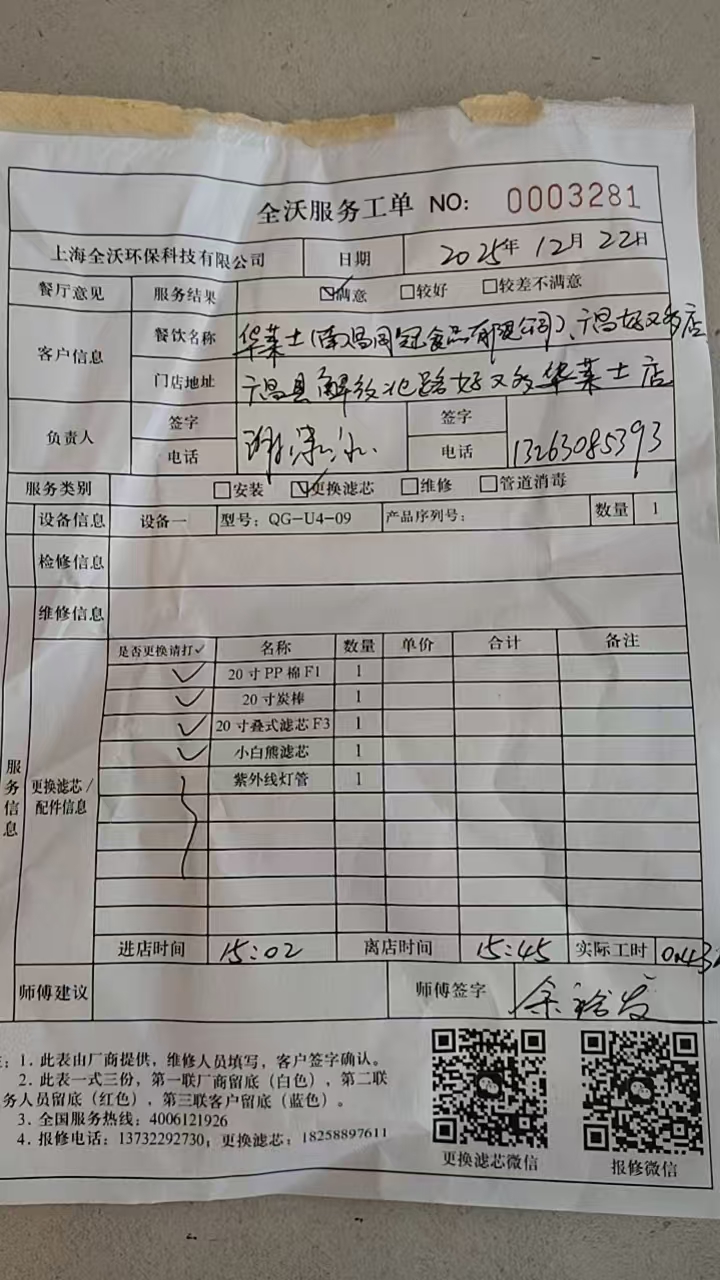 全沃服务工单 NO: 0003281
上海全沃环保科技有限公司 日期 2025年12月22日
餐厅意见 服务结果 ☑满意 □较好 □较差不满意
客户信息 餐饮名称 华莱士(南昌同冠食品有限公司)、广昌好又多店
门店地址 广昌县解放北路好又多华莱士店
负责人 签字 签字
电话 电话 13263085393
服务类别 □安装 ☑更换滤芯 □维修 □管道消毒
设备信息 设备一 型号:QG-U4-09 产品序列号: 数量 1
检修信息
维修信息
服务信息
更换滤芯/配件信息
是否更换请打✓ 名称 数量 单价 合计 备注
✓ 20寸PP棉F1 1
✓ 20寸炭棒 1
✓ 20寸叠式滤芯F3 1
✓ 小白熊滤芯 1
紫外线灯管 1
进店时间 15:02 离店时间 15:45 实际工时
师傅建议 师傅签字
1. 此表由厂商提供,维修人员填写,客户签字确认。
2. 此表一式三份,第一联厂商留底(白色),第二联
务人员留底(红色),第三联客户留底(蓝色)。
3. 全国服务热线:4006121926
4. 报修电话:13732292730;更换滤芯:18258897611
更换滤芯微信 报修微信